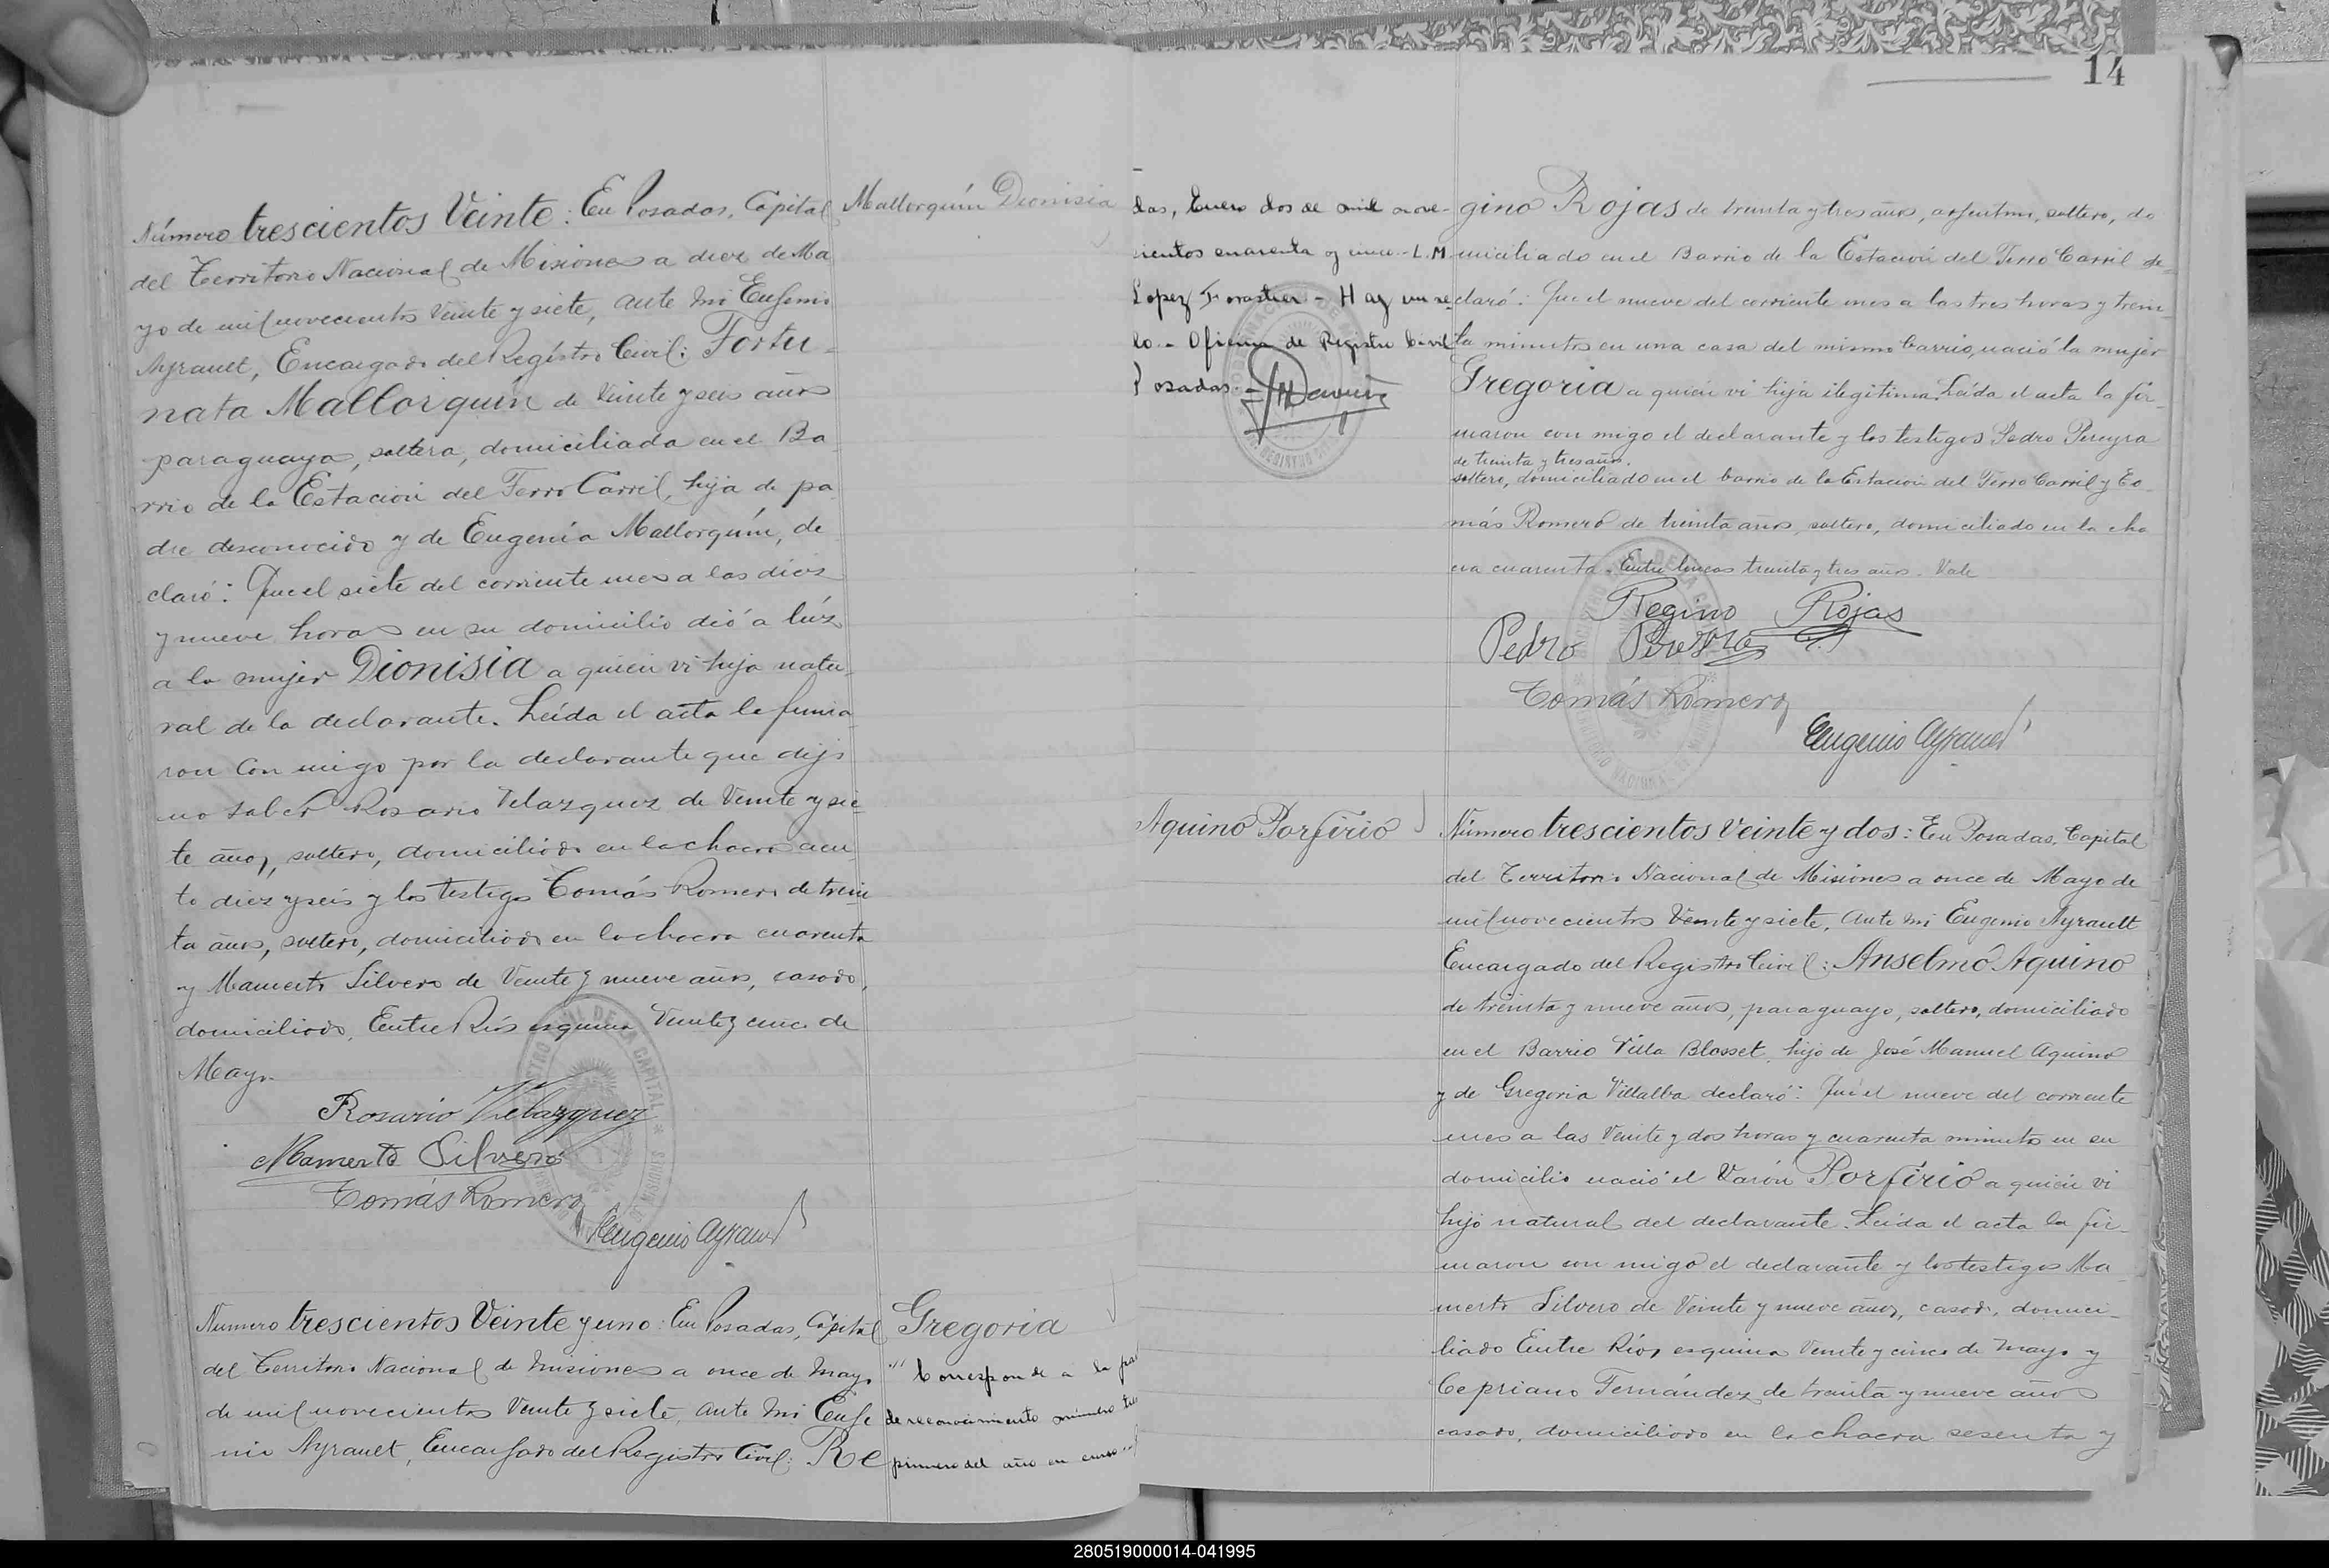 Número trescientos Veinte: En Posadas, Capital
del Territorio Nacional de Misiones a diez de Ma
yo de mil novecientos Veinte y siete, ante mi Eugenio
Ayrault, Encargado del Registro Civil: Fortu-
nata Mallorquín de Veinte y seis años
paraguaya, soltera, domiciliada en el Ba
rrio de la Estación del Ferro Carril, hija de pa
dre desconocido y de Eugenia Mallorquín, de
claró: Que el siete del corriente mes a las diez
y nueve horas en su domicilio dió a lúz
a la mujer Dionisia a quien vi hija natu-
ral de la declarante. Leída el acta la firma
ron con migo por la declarante que dijo
no saber Rosario Velazquez de Veinte y sie-
te años, soltero, domiciliado en la chacra cien
to diez y seis y los testigos Tomás Romero de trein
ta años, soltero, domiciliado en la chacra cuarenta
y Mamerto Silvero de Veinte y nueve años, casado,
domiciliado, Entre Ríos esquina Veinte y cinco de
Mayo.
Rosario Velazquez
Mamerto Silvero
Tomás Romero
Eugenio Ayrault
Mallorquín Dionisia
Número trescientos Veinte y uno: En Posadas, Capital
del Territorio Nacional de Misiones a once de Mayo
de mil novecientos Veinte y siete, ante mi Euge
nio Ayrault, Encargado del Registro Civil: Re
Gregoria
"Corresponde a la
de reconocimiento número
primero del año en curso
14
das, Enero dos de mil nove-
cientos cuarenta y cinco - L. M
Lopez Forastier - Hay un se
llo - Oficina de Registro Civil
Posadas.
gino Rojas de treinta y tres años, argentino, soltero, do
miciliado en el Barrio de la Estación del Ferro Carril de-
claró: Que el nueve del corriente mes a las tres horas y trein-
ta minutos en una casa del mismo barrio, nació la mujer
Gregoria a quien vi hija ilegitima. Leída el acta la fir-
maron con migo el declarante y los testigos Pedro Pereyra
de treinta y tres años.
soltero, domiciliado en el barrio de la Estación del Ferro Carril y To
más Romero de treinta años, soltero, domiciliado en la cha
cra cuarenta. Entre líneas treinta y tres años. Vale
Regino Rojas
Pedro Pereyra
Tomás Romero
Eugenio Ayrault
Aquino Porfirio
Número trescientos Veinte y dos: En Posadas, Capital
del Territorio Nacional de Misiones a once de Mayo de
mil novecientos Veinte y siete, ante mi Eugenio Ayrault
Encargado del Registro Civil: Anselmo Aquino
de treinta y nueve años, paraguayo, soltero, domiciliado
en el Barrio Villa Blosset, hijo de José Manuel Aquino
y de Gregoria Villalba declaró: Que el nueve del corriente
mes a las Veinte y dos horas y cuarenta minutos en su
domicilio nació el Varón Porfirio a quien vi
hijo natural del declarante. Leída el acta la fir-
maron con migo el declarante y los testigos Ma
merto Silvero de Veinte y nueve años, casado, domici-
liado Entre Ríos esquina Veinte y cinco de Mayo y
Cepriano Fernández de treinta y nueve años
casado, domiciliado en la chacra sesenta y
280519000014-041995